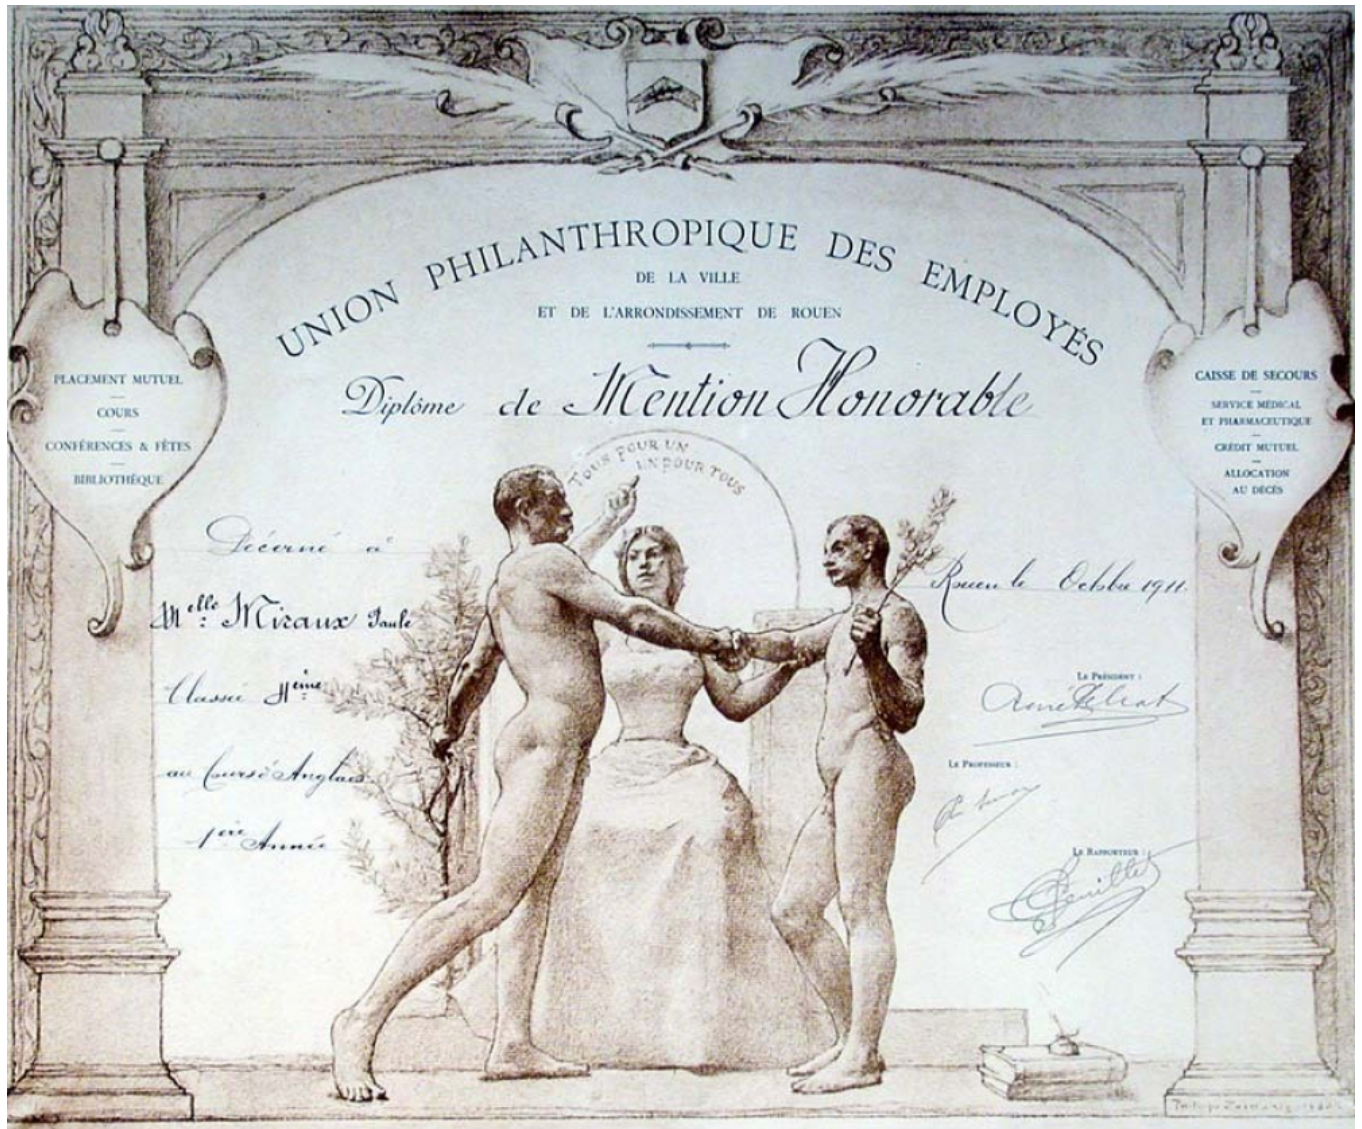 UNION PHILANTHROPIQUE DES EMPLOYÉS
DE LA VILLE
ET DE L'ARRONDISSEMENT DE ROUEN
Diplôme de Mention Honorable
PLACEMENT MUTUEL
COURS
CONFÉRENCES & FÊTES
BIBLIOTHÈQUE
CAISSE DE SECOURS
SERVICE MÉDICAL
ET PHARMACEUTIQUE
CRÉDIT MUTUEL
ALLOCATION
AU DÉCÈS
TOUS POUR UN
UN POUR TOUS
Décerné à
Melle Miraux Paule
Classée
au Cours d'Anglais
1ère Année
Rouen le Octobre 1911
LE PRÉSIDENT :
LE PROFESSEUR :
LE RAPPORTEUR :